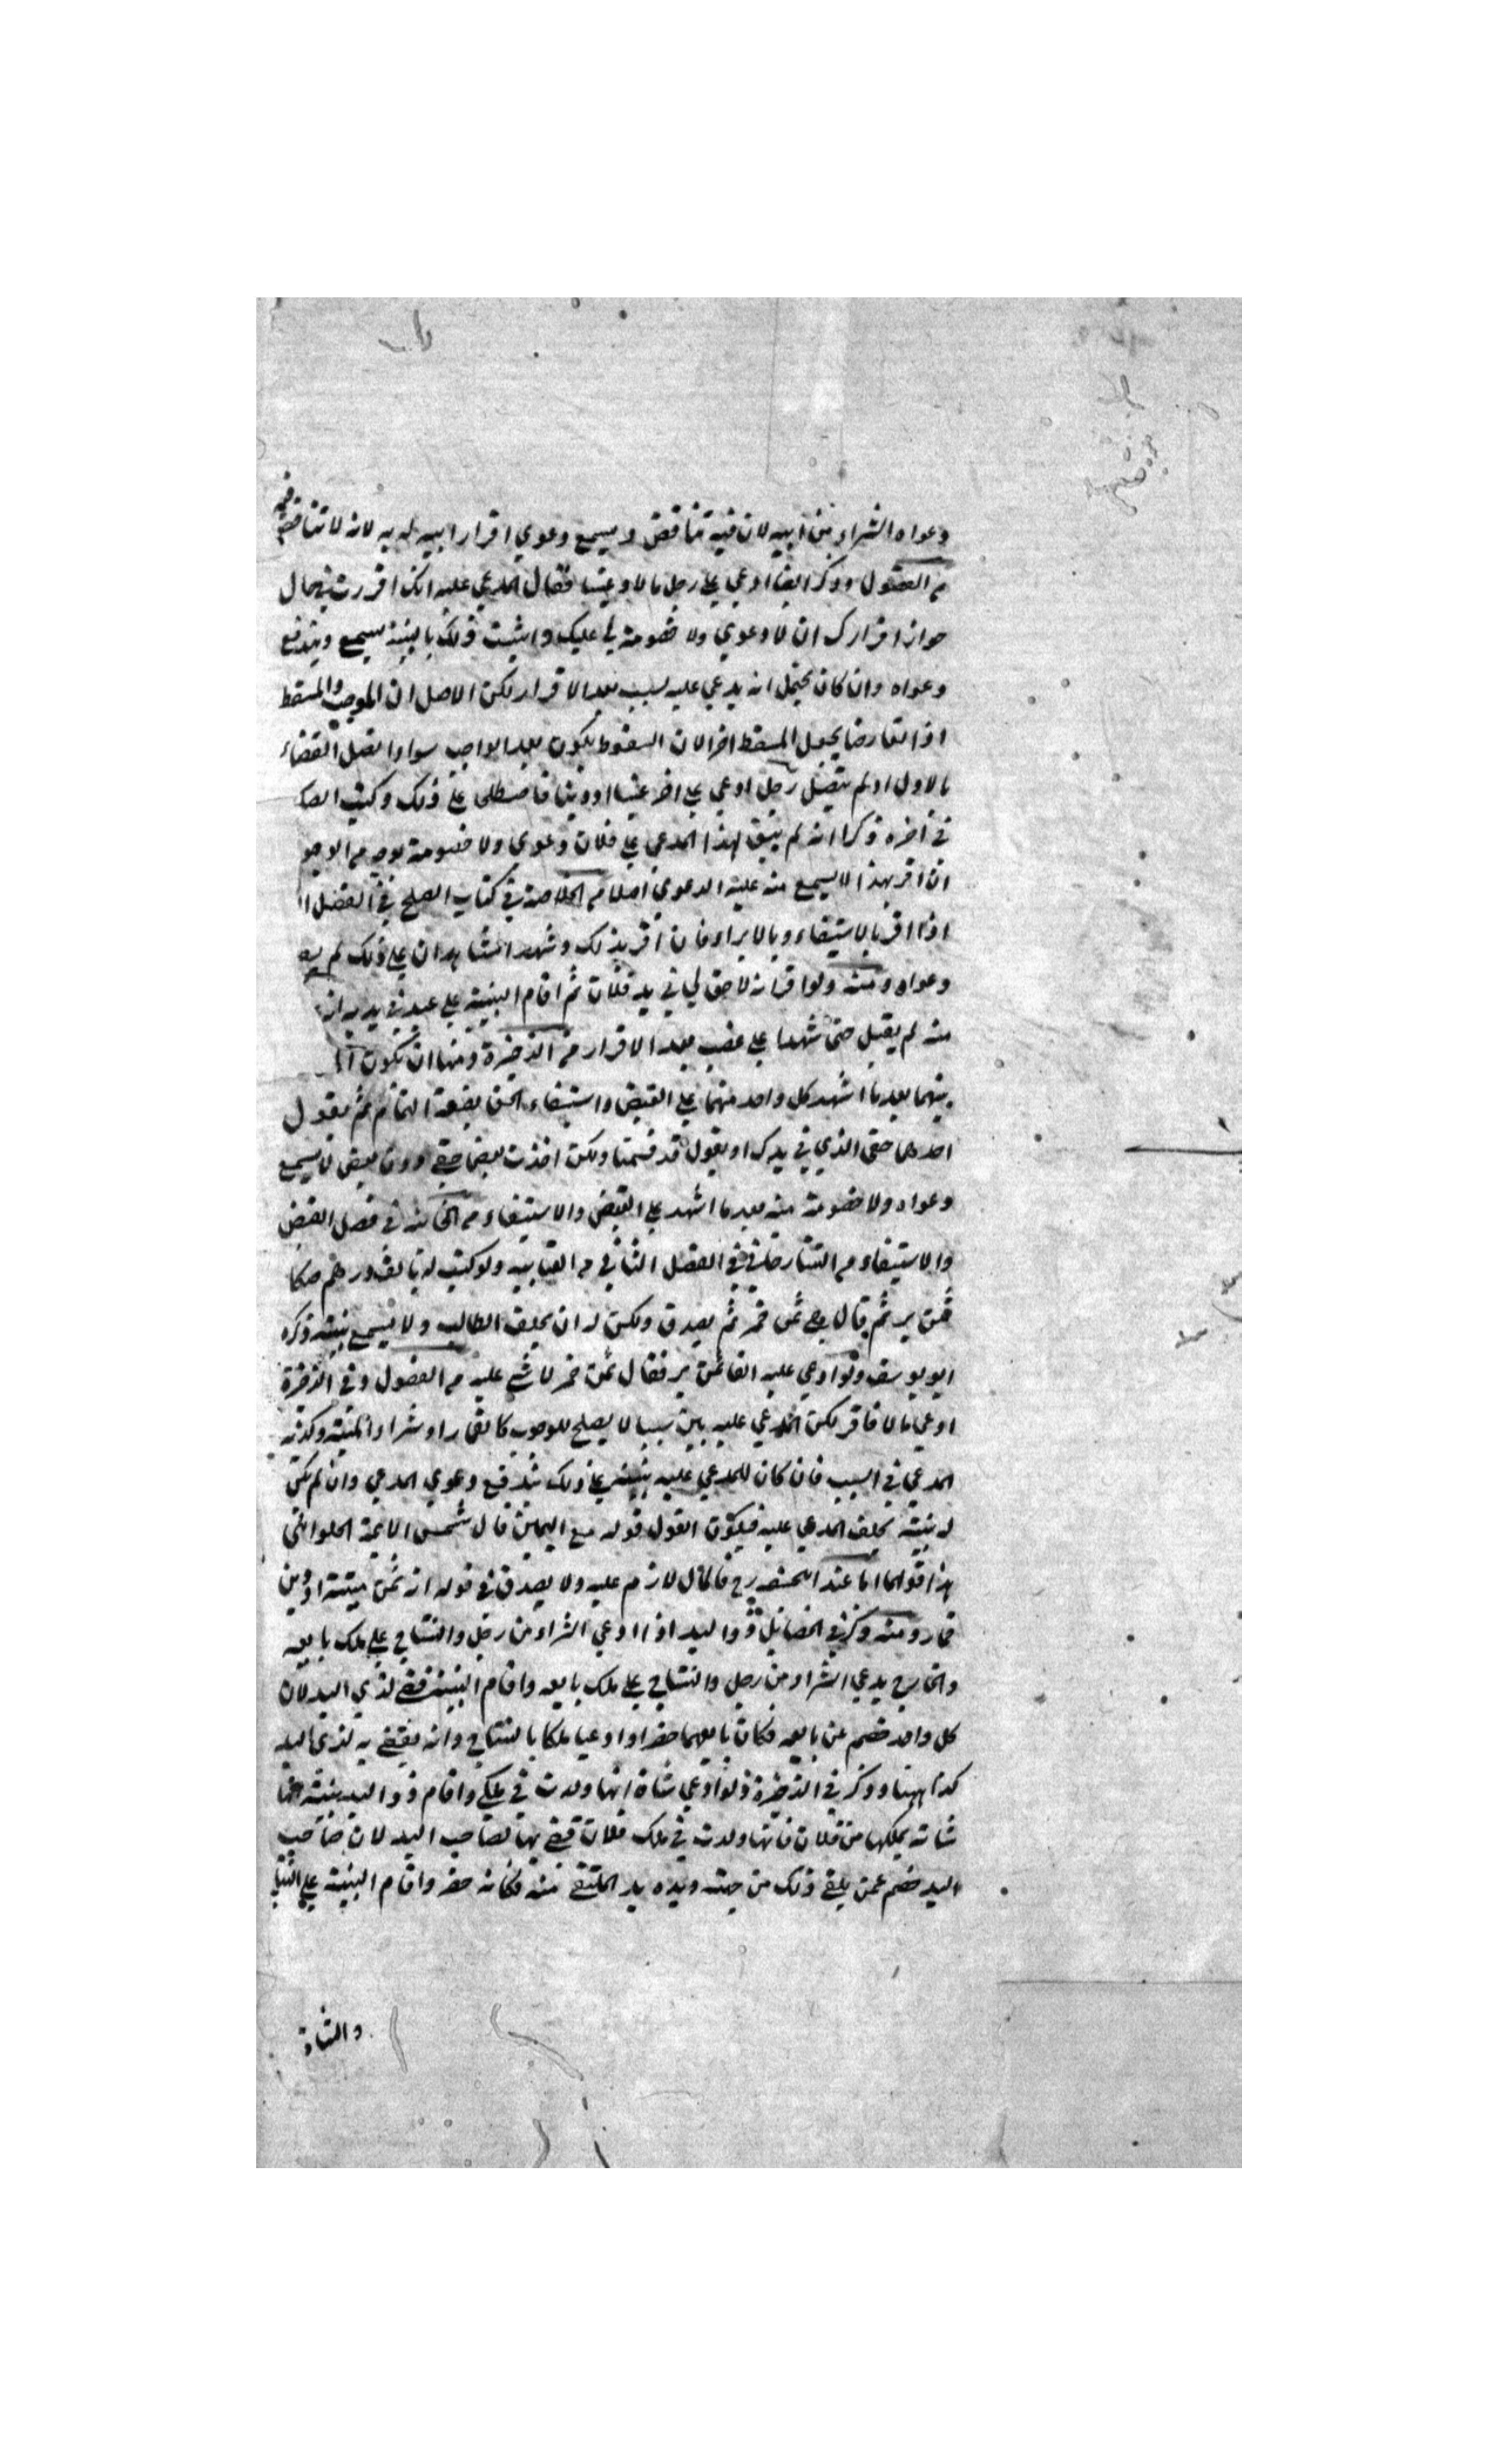 دعواه الشراء من ابيه لان فيه تناقض ويسمع دعوي اقرار ابيه له به لانه لا تناقض فيه
من الفصول وذكر ايضا ادعي علي رجل مالا او عينا فقال المدعي عليه انك اقررت في حال
جواز اقرارك ان لا دعوي ولا خصومة لي عليك واثبت ذلك بالبينة يسمع ويندفع
دعواه وان كان يحتمل انه يدعي عليه بسبب بعد الاقرار لكن الاصل ان الموجب والمسقط
اذا تعارضا يجعل المسقط اخرا لان السقوط يكون بعد الوجب سواء اتصل القضاء
بالاول او لم يتصل رجل ادعي علي اخر عينا او دينا فاصطلحا علي ذلك وكتب الصك
في اخره ذكرا انه لم يبق لهذا المدعي علي فلان دعوي ولا خصومة بوجه من الوجو
ان اقر بهذا لا يسمع منه عليه الدعوي اصلا من الخلاصة في كتاب الصلح في الفصل ا
اذا اقر بالاستيفاء وبالابراء فان اقر بذلك وشهد الشاهدان علي ذلك لم يصح
دعواه ومنه ولو اقر انه لا حق لي في يد فلان ثم اقام البينة علي عبد في يديه انه
منه لم يقبل حتي شهدا علي غصب بعد الاقرار من الذخيرة ومنها ان يكون
بينهما بعد ما اشهد كل واحد منهما علي القبض واستيفاء الحق بصفة التمام ثم يقول
احدهما حقي الذي في يدك او يقول قد قسمنا ولكن اخذت بعض حقي دون بعض لا يسمع
دعواه ولا خصومة منه بعد ما اشهد علي القبض والاستيفاء من الخانية في فصل القبض
والاستيفاء من التتارخاني في الفصل الثاني من العتابيه ولو كتب له بالف درهم صكا
ثمن بر ثم قال هي ثمن خمر لم يصدق ولكن له ان يحلف الطالب ولا يسمع بينته ذكره
ابو يوسف ولو ادعي عليه الفا ثمن بر فقال ثمن خمر لا شي عليه من الفصول وفي الذخيرة
ادعي مالا فاقر لكن المدعي عليه بين سببا لا يصلح للوجوب كالقمار او شراء الميتة وكذبه
المدعي في السبب فان كان للمدعي عليه بينة علي ذلك تندفع دعوي المدعي وان لم تكن
له بينة يحلف المدعي عليه فيكون القول قوله مع اليمين قال شمس الايمة الحلواني
هذا قولهما اما عند ابي حنيفه رح فالمال لازم عليه ولا يصدق في قوله انه ثمن ميتة او دين
قمار ومنه وذكر في الخصايل ذو اليد اذا ادعي الشراء من رجل والنتاج علي ملك بايعه
والخارج يدعي الشراء من رجل والنتاج علي ملك بايعه واقام البينة قضي لذي اليد لان
كل واحد خصم عن بايعه فكان بايعهما حضرا وادعيا ملكا بالنتاج وانه يقضي به لذي اليد
كذا ههنا وذكر في الذخيرة ولو ادعي شاة انها ولدت في ملكي واقام ذو اليد بينة انها
شاته يملكها من فلان فانها ولدت في ملك فلان قضي بها لصاحب اليد لان صاحب
اليد خصم عمن يلقي ذلك من جهته ويده يد الملتقي منه فكانه حضر واقام البينة علي النتاج
والشاة